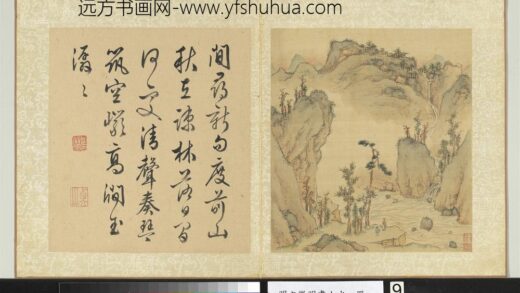 远方书画网-www.yfshuhua.com
閒尋新句度前山
秋在疎林落日間
何處清聲奏琴
筑空巖高澗玉
潺〻
9